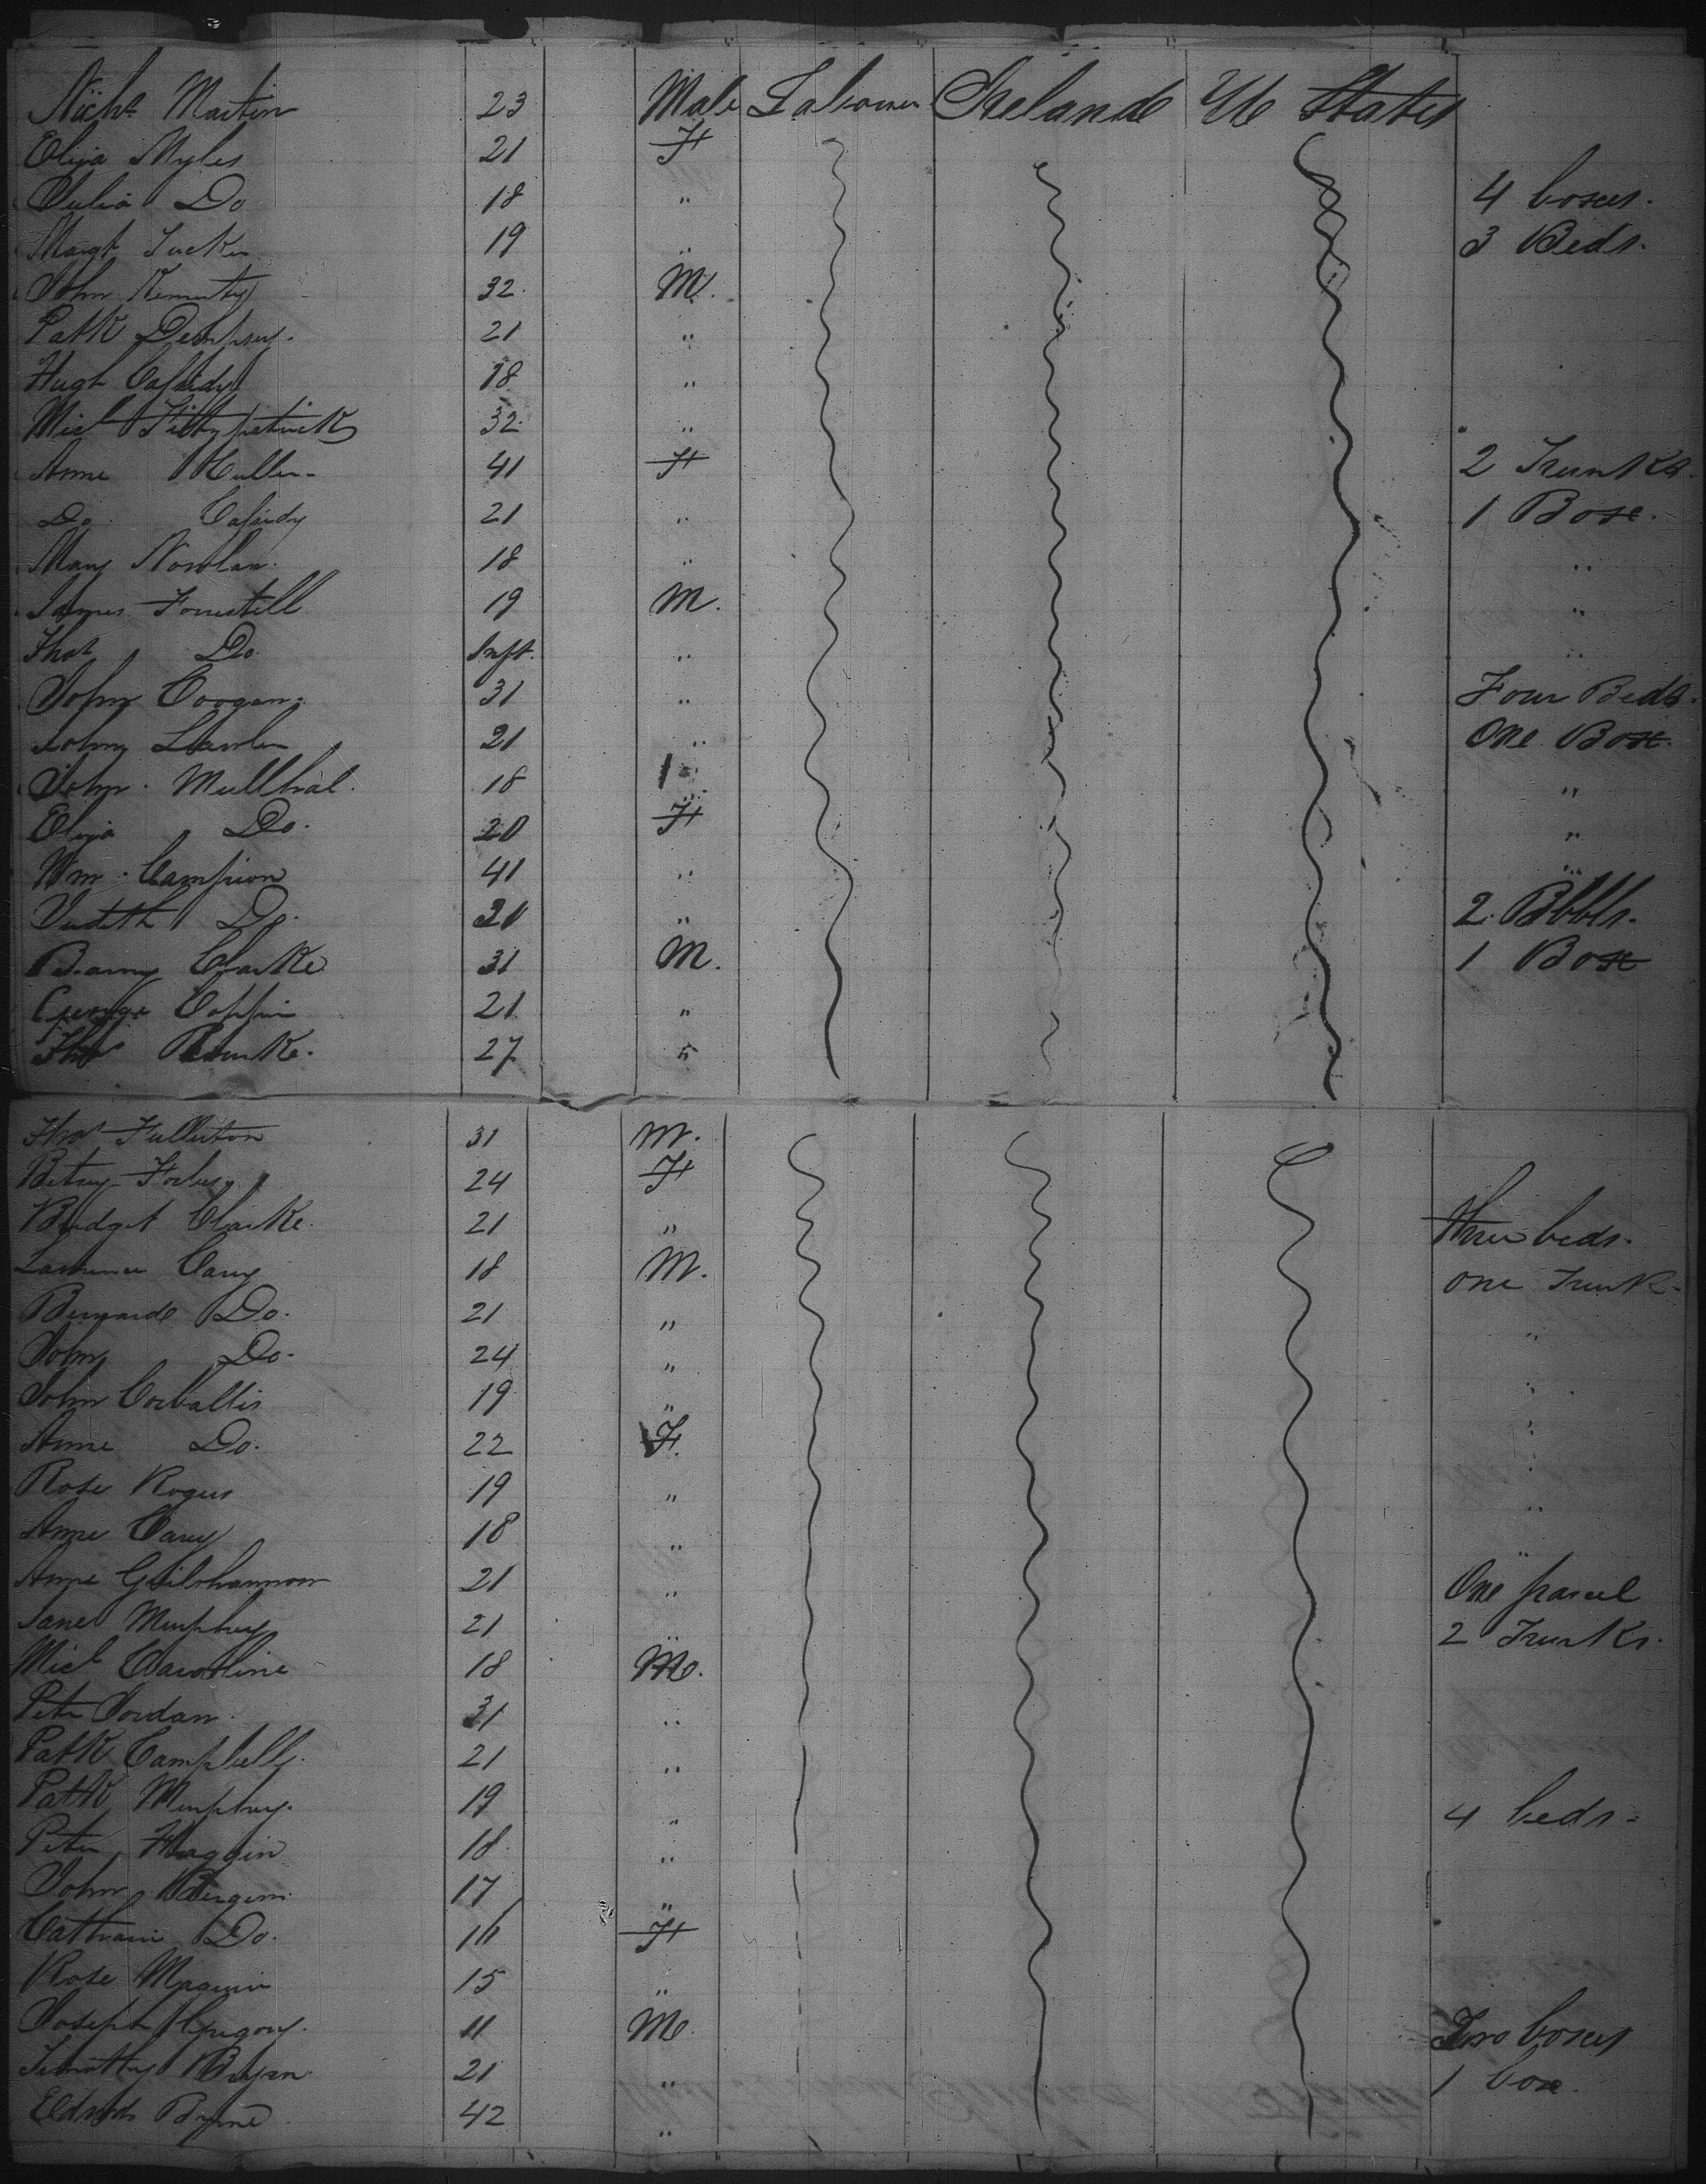 Nichs Martin 23 Male Labourer Ireland U States
Eliza Myles 21 F
Julia Do 18 " 4 boxes.
Margt Tucker 19 " 3 Beds.
John 32. M.
Patk Dempsey. 21 "
Hugh Cassidy 18 "
Michl Fittzpatrick 32 "
Anne 41 F 2 Trunks.
Do. Cassidy 21 " 1 Box.
Mary Nowlan. 18 " "
James Forrestell 19 M. "
Thos Do. Inft. " "
John Coogan. 31 " Four Beds.
John Lawler 21 " One Box.
John. Mullhal. 18 " "
Eliza Do. 20 F "
Wm. Campion 41 " "
Judith Do. 20 " 2. Bbbls.
Barny Clarke 31 M. 1 Box
George Coffin 21 "
Thos Rourke. 27 "
Thos Fullerton 31 M.
Betsy 24 F
Bridget Clarke. 21 " three beds.
Lawrence Cary 18 M. one Trunk.
Bernard Do. 21 " "
John Do. 24 " "
John Corballis 19 " "
Anne Do. 22 F. "
Rose Rogers 19 " "
Anne Carey 18 " "
Anne 21 " One parcel
Jane Murphy 21 " 2 Trunks.
Michl 18 M.
Peter Jordan. 31 "
Patk Campbell. 21 "
Patk Murphy. 19 " 4 beds.
Peter Haggin 18. "
John Bergin. 17 "
Catharine Do. 16 F
Rose Maguire 15 "
Joseph Gregory. 11 M. Two boxes
Timothy 21 " 1 box.
Edwd Byrne 42 "